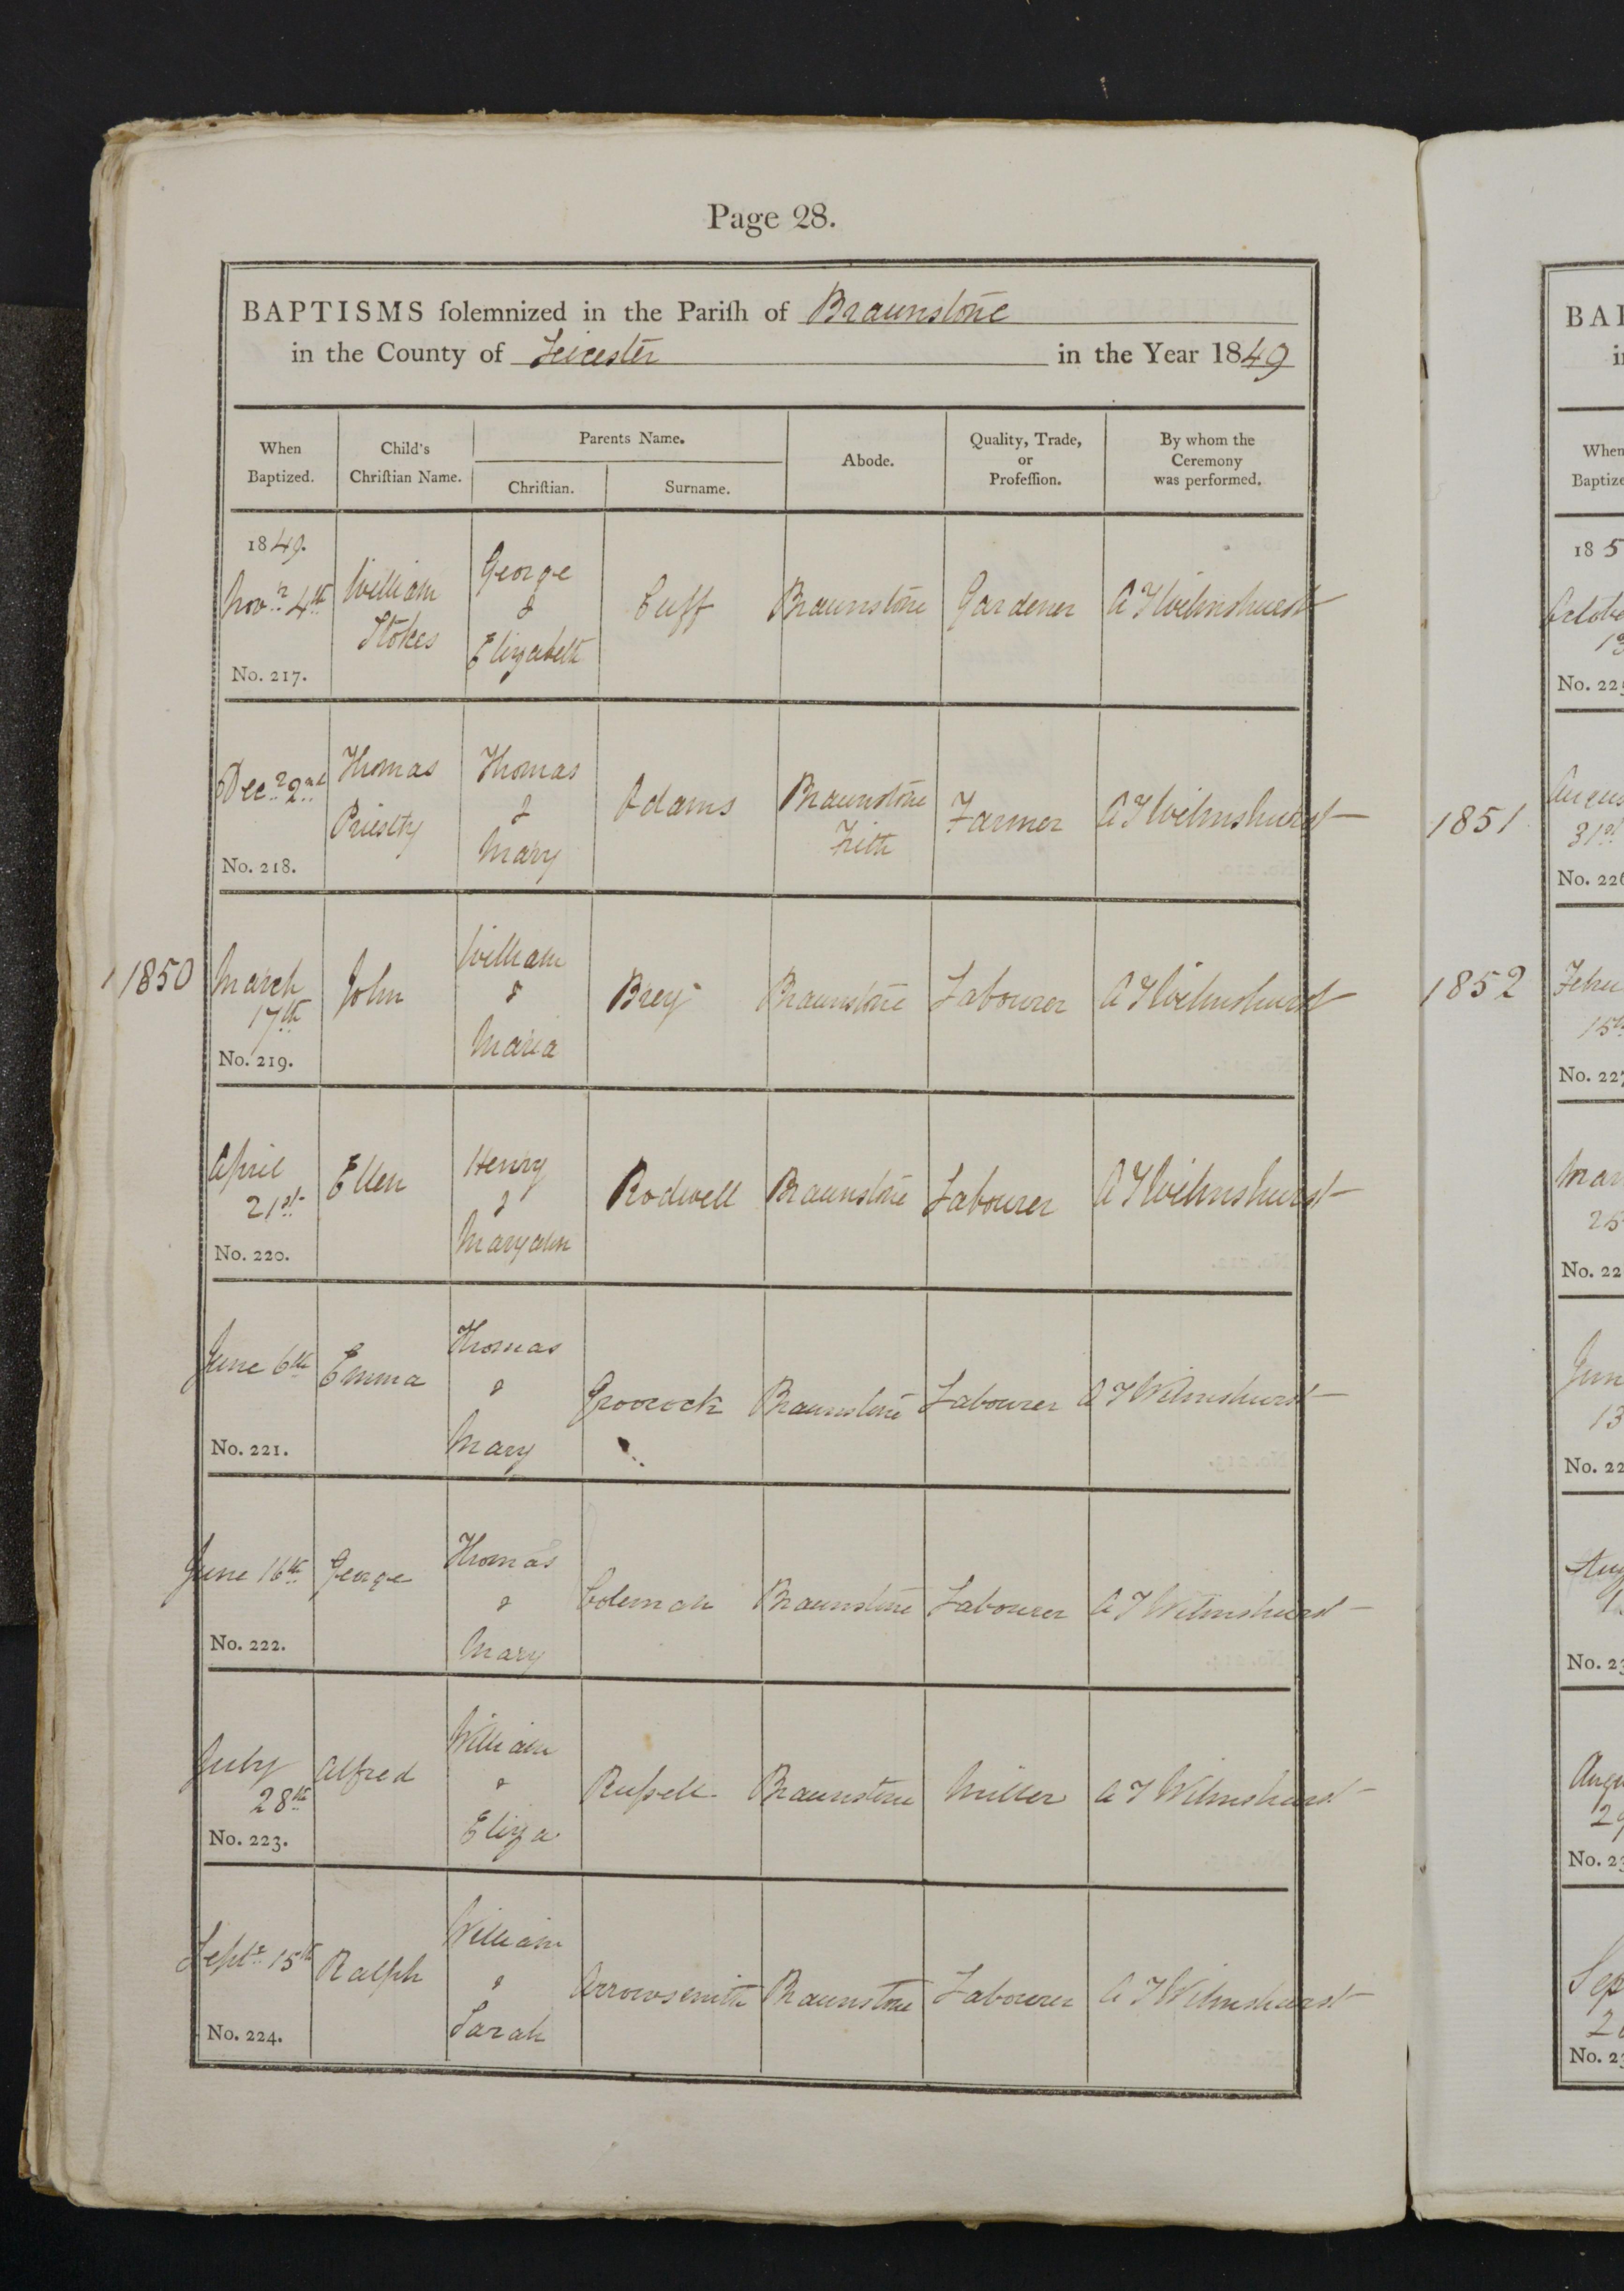 Page 28.
BAPTISMS ſolemnized in the Pariſh of Braunstone
in the County of Leicester in the Year 1849
When Baptized.
Child's Chriſtian Name.
Parents Name.
Chriſtian.
Surname.
Abode.
Quality, Trade, or Profeſſion.
By whom the Ceremony was performed.
1849.
Novr 4th
No. 217.
William
Stokes
George
&
Elizabeth
Cuff
Braunstone
Gardener
A T Wilmshurst
Decr 2nd
No. 218.
Thomas
Priestly
Thomas
&
Mary
Adams
Braunstone
Frith
Farmer
A T Wilmshurst
1850
March
17th
No. 219.
John
William
&
Maria
Brey
Braunstone
Labourer
A T Wilmshurst
April
21st
No. 220.
Ellen
Henry
&
Maryann
Rodwell
Braunstone
Labourer
A T Wilmshurst
June 6th
No. 221.
Emma
Thomas
&
Mary
Groocock
Braunstone
Labourer
A T Wilmshurst
June 16th
No. 222.
George
Thomas
&
Mary
Coleman
Braunstone
Labourer
A T Wilmshurst
July
28th
No. 223.
Alfred
William
&
Eliza
Ruſsell
Braunstone
Miller
A T Wilmshurst
Septr 15th
No. 224.
Ralph
William
&
Sarah
Arrowsmith
Braunstone
Labourer
A T Wilmshurst
BA
When
Baptize
185
Octobe
No. 22
1851
Augus
31st
No. 226
1852
Febru
15th
No. 227
Mar
25
No. 22
Jun
13
No. 22
Aug
No. 23
Augu
29
No. 23
Sep
No. 23